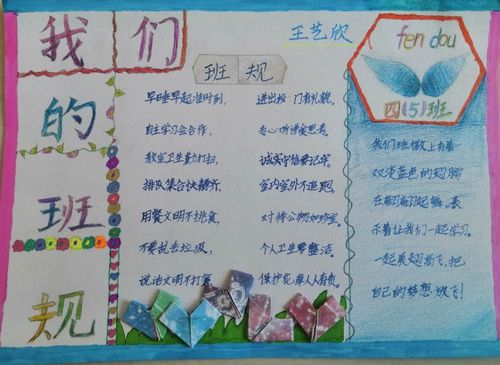 我们的班规
王艺欣
班规
早睡早起准时到,
进出校门有礼貌。
自主学习会合作,
专心听讲爱思考。
教室卫生勤打扫,
诚实守信要记牢。
排队集合快静齐,
室内室外不追跑。
用餐文明不挑食,
对待公物如珍宝。
不要乱丢垃圾,
个人卫生要整洁。
说话文明不打
保护花草人人有责。
fen dou
四(5)班
我们班徽上有着
双淡蓝色的翅膀
在翩翩起舞。表
示着让我们一起学习。
一起展翅高飞,把
自己的梦想放飞!